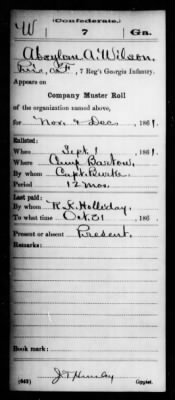 (Confederate.)
W | 7 | Ga.
Absylom A. Wilson
Co. F, 7 Reg't Georgia Infantry.
Appears on
Company Muster Roll
of the organization named above,
for Nov. & Dec., 1861.
Enlisted:
When Sept. 1, 1861.
Where Camp Bartow.
By whom Capt. Burke
Period 12 mos.
Last paid:
By whom R. K. Holliday.
To what time Oct. 31, 186
Present or absent Present.
Remarks:
Book mark:
(642) Copyist.